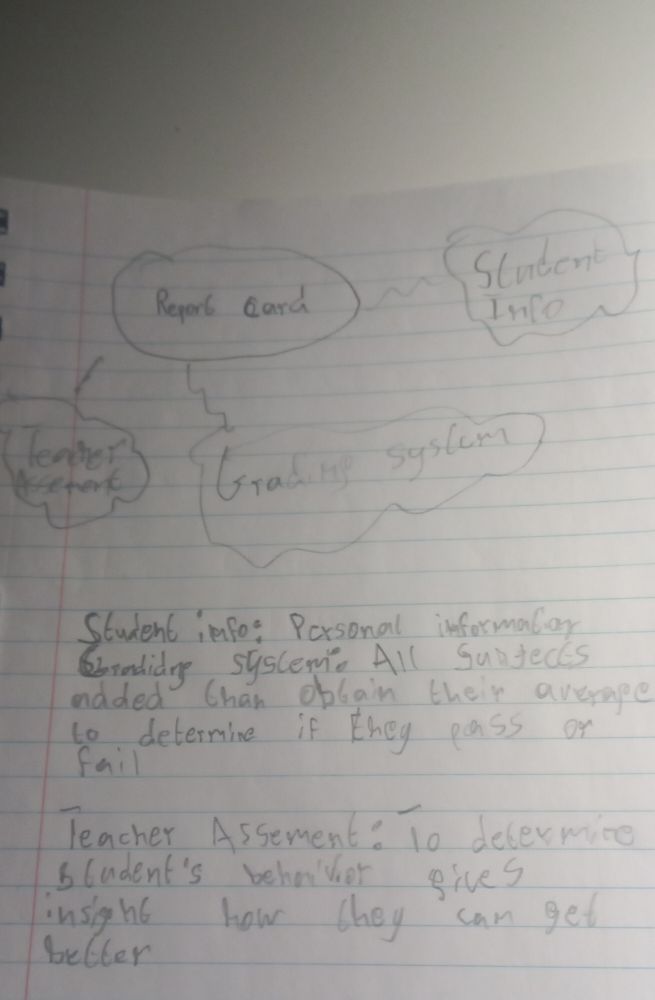 Report Card
Student
Info
Teacher
Assement
Grading system
Student info: Personal information
Gradidng system: All Subjects
added than obtain their average
to determine if they pass or
fail
Teacher Assement: To determine
student's behaivior gives
insight how they can get
better